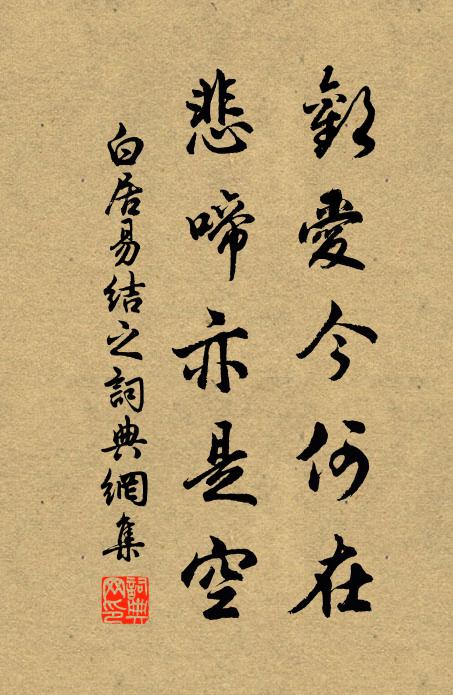 歡愛今何在
悲啼亦是空
白居易結之詞典網集
詞典网印